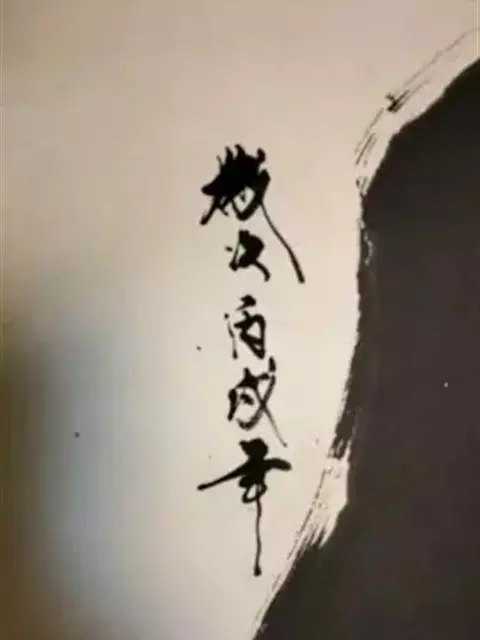 歲次丙戌年